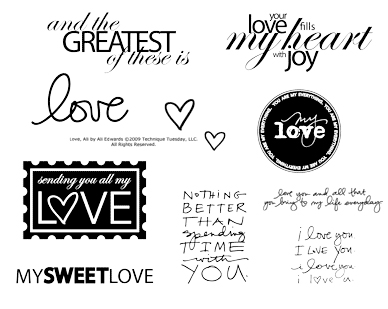 and the
GREATEST
of these is
your
love fills
my heart
with
joy
love
Love, Ali by Ali Edwards ©2009 Technique Tuesday, LLC.
All Rights Reserved.
YOU ARE MY EVERYTHING. YOU ARE MY EVERYTHING. YOU ARE MY EVERYTHING. YOU ARE MY EVERYTHING.
my
love
sending you all my
LOVE
NOTHING
BETTER
THAN
spending
TIME
with
YOU.
love you and all that
you bring to my life everyday.
i love you
I LOVE YOU
i love you
i love u
MYSWEETLOVE